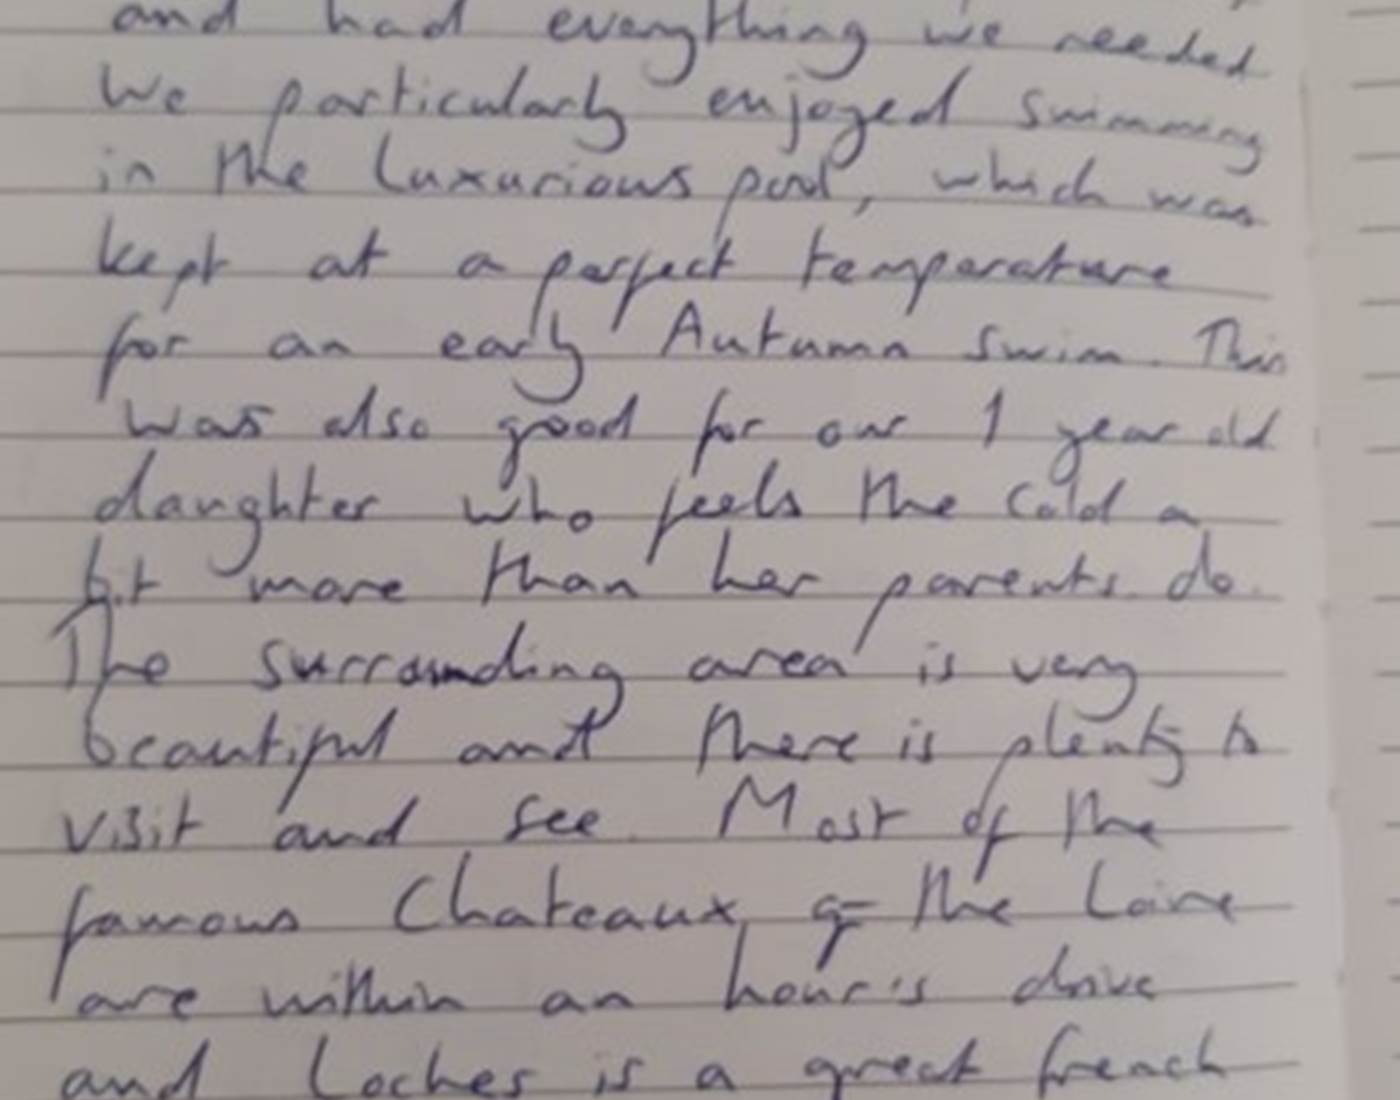 and had everything we needed
We particularly enjoyed swimming
in the luxurious pool, which was
kept at a perfect temperature
for an early Autumn swim. This
was also good for our 1 year old
daughter who feels the cold a
bit more than her parents do.
The surrounding area is very
beautiful and there is plenty to
visit and see. Most of the
famous Chateaux of the Loire
are within an hour's drive
and Loches is a great french